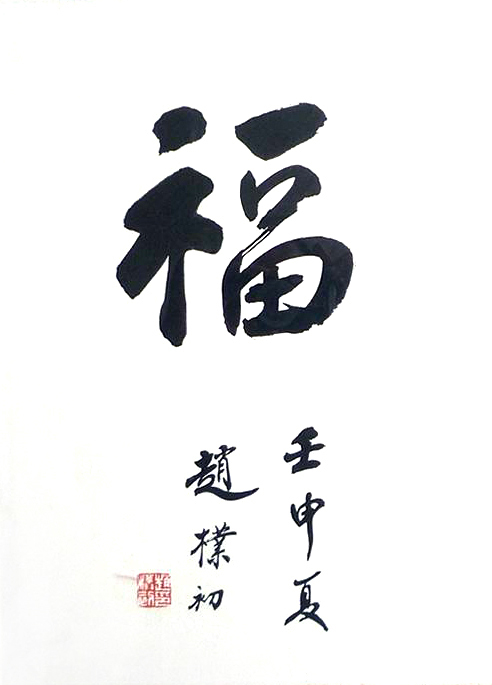 福
壬申夏
趙樸初